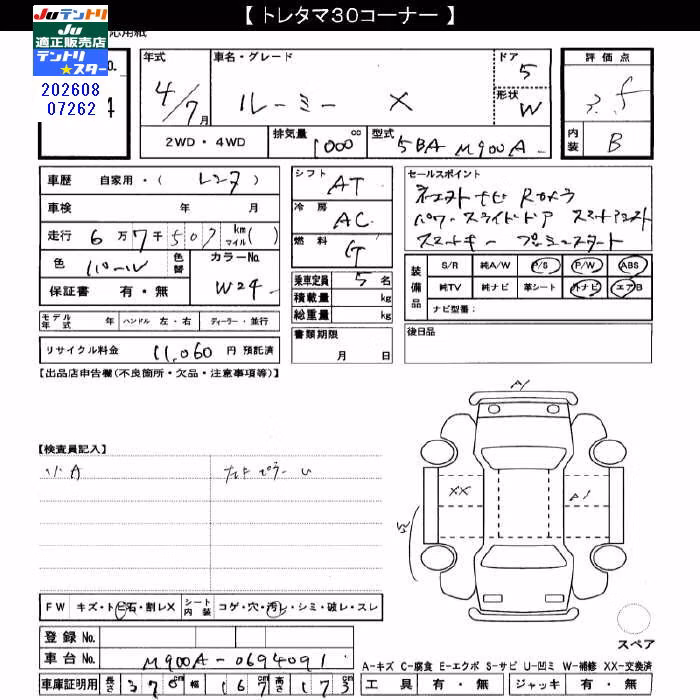 【 トレタマ30コーナー 】
Juテントリ
Ju
適正販売店
テントリ
★スター
202608
07262
年式
4/7月
車名・グレード
ルーミー X
ドア
5
形状
W
評価点
内装
B
2WD・4WD
排気量
1000 cc
型式
5BA M900A
車歴 自家用・( レンタ )
車検 年 月
走行 6万7千507 km マイル ( )
色 パール
色替
カラーNo.
W24
保証書 有・無
シフト AT
冷房 AC
燃料 G
乗車定員 5 名
積載量 kg
総重量 kg
セールスポイント
パワースライドドア スマートアシスト
スマートキー プッシュスタート
装備品
S/R 純A/W P/S P/W ABS
純TV 純ナビ 革シート 外ナビ エアB
ナビ型番：
モデル年式 年 ハンドル 左・右 ディーラー・並行
リサイクル料金 11,060 円 預託済
書類期限
月 日
後日品
【出品店申告欄(不良箇所・欠品・注意事項等)】
A1
【検査員記入】
小A
XX
A1
W
FW キズ・ト ビ石・割レX
シート内装 コゲ・穴・汚レ・シミ・破レ・スレ
スペア
登録 No.
車台 No. M900A-0694091
A-キズ C-腐食 E-エクボ S-サビ U-凹ミ W-補修 XX-交換済
車庫証明用 長さ 370 cm 幅 167 cm 高さ 173 cm
工具 有・無 ジャッキ 有・無